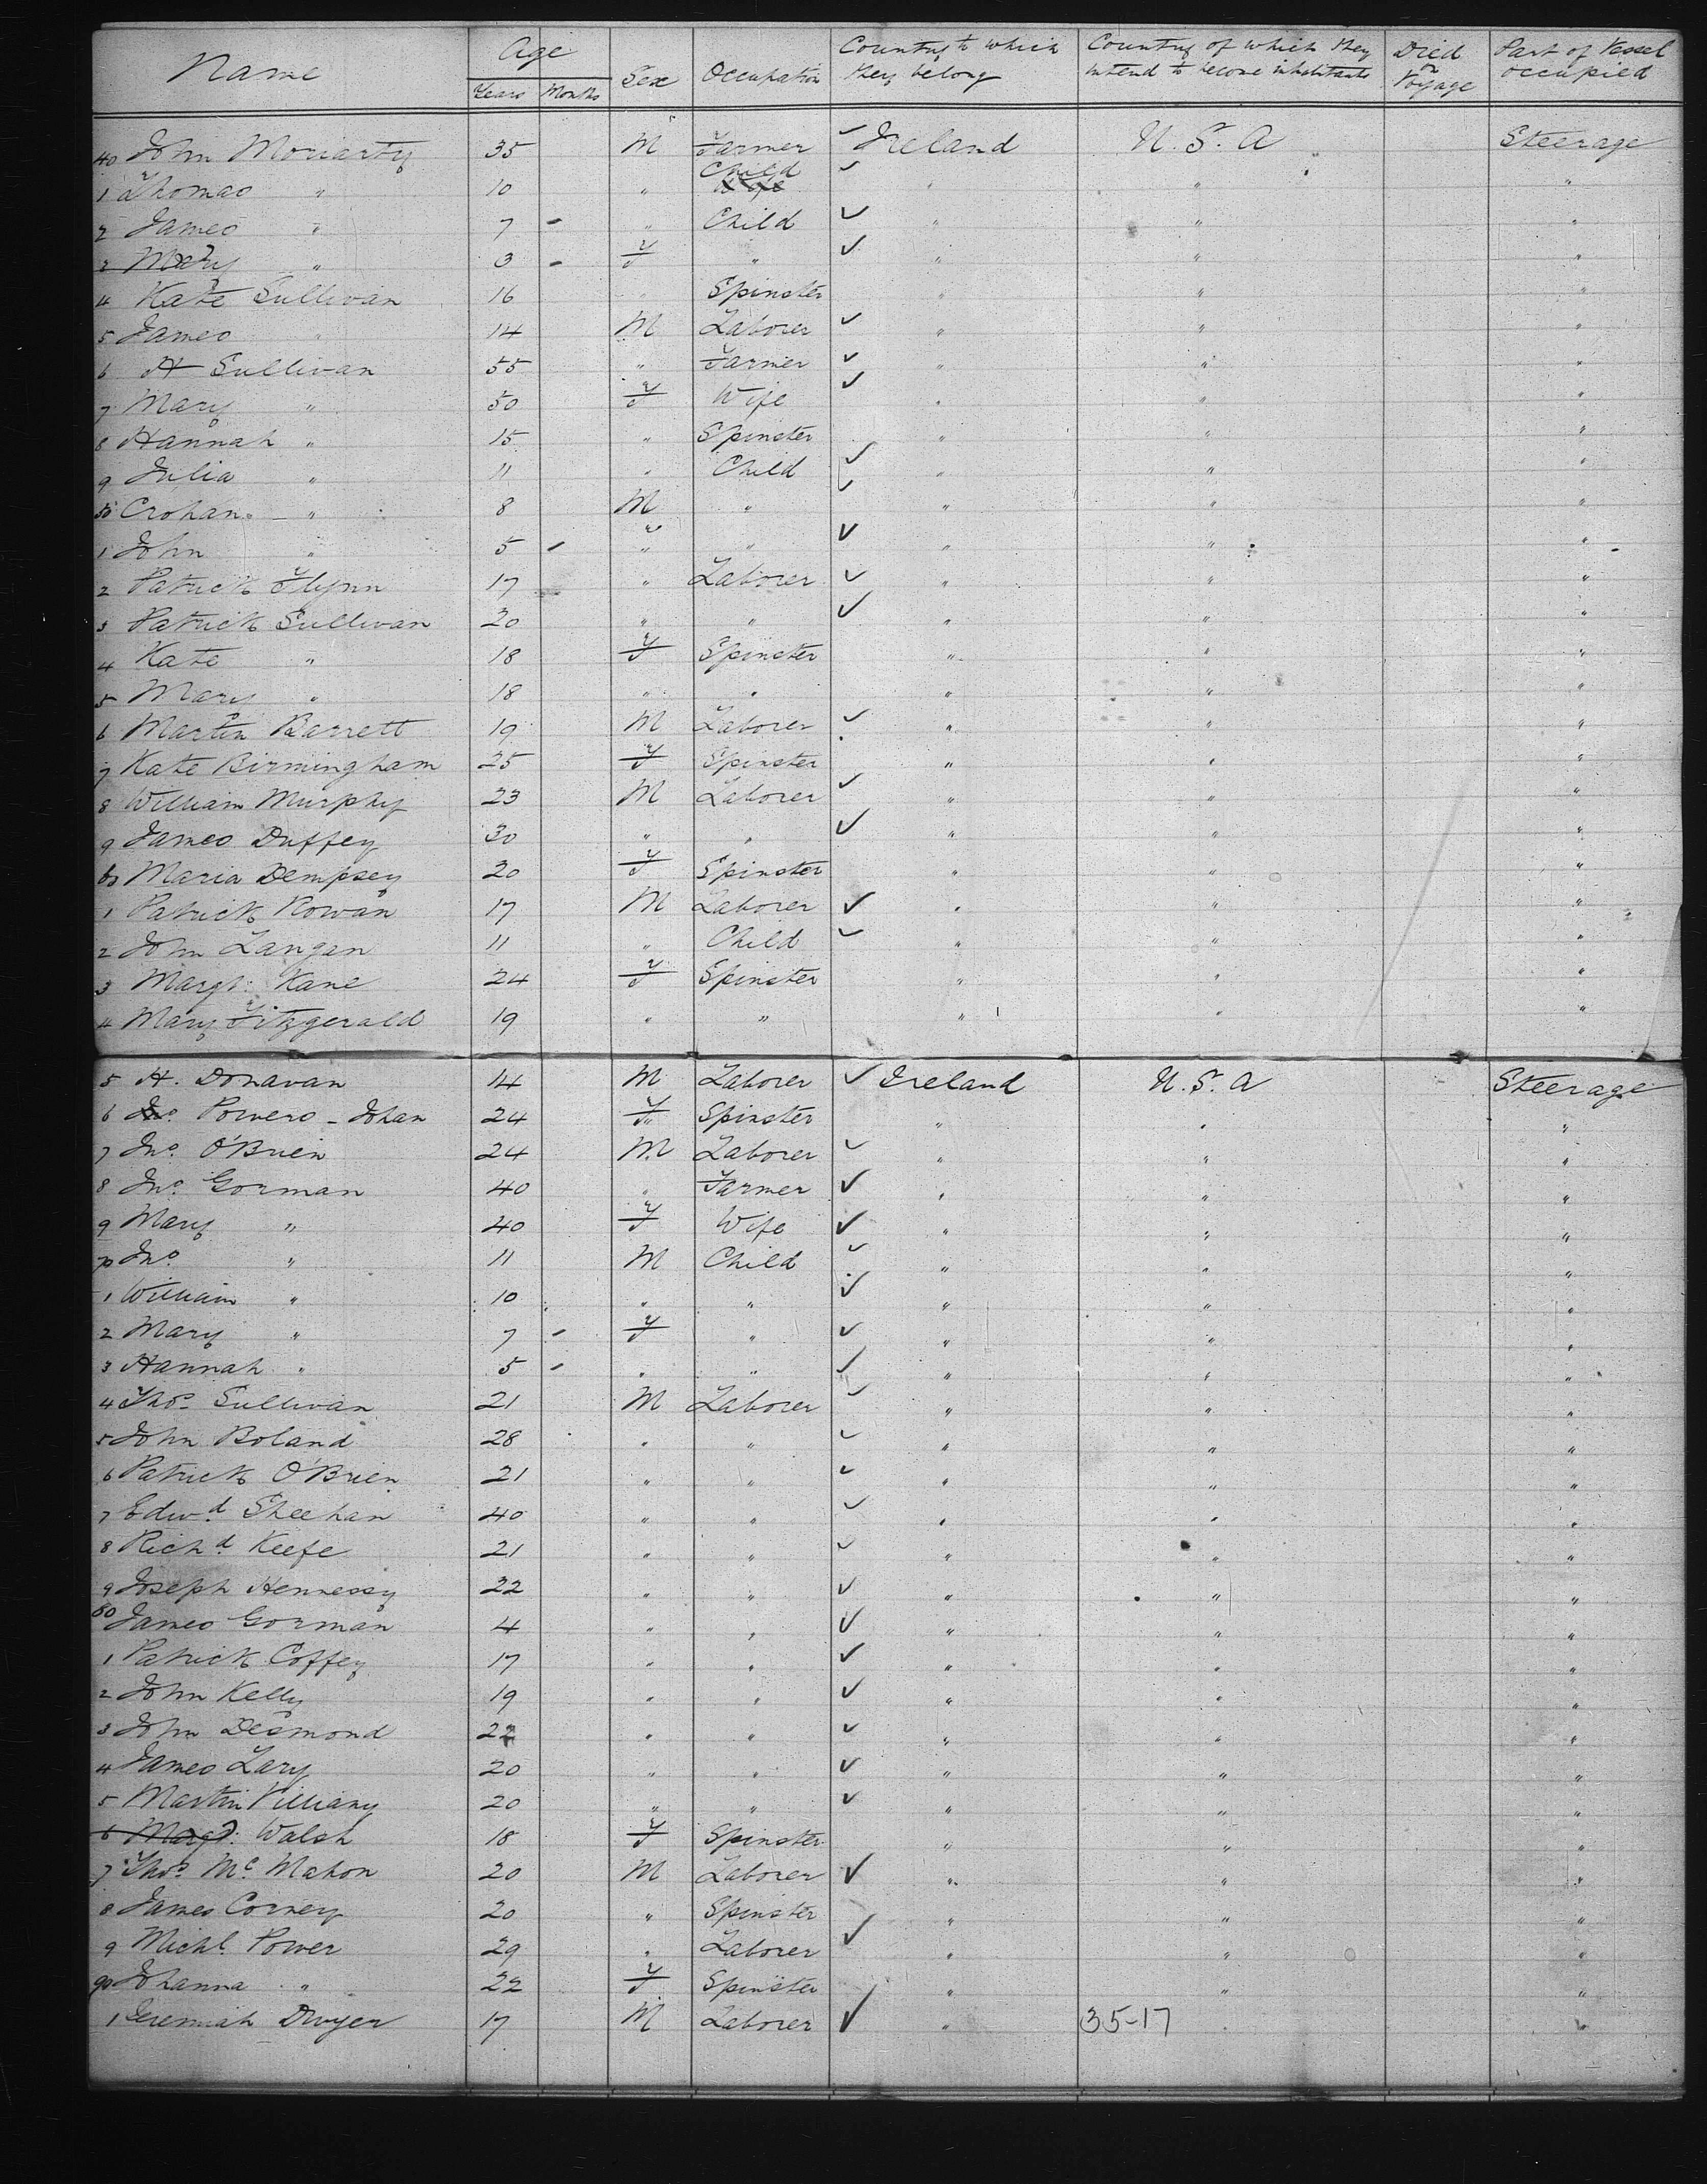 Name Age Sex Occupation Country to which they belong Country of which they intend to become inhabitants Died on Voyage Part of Vessel occupied
Years Months
40 John Moriarty 35 M Farmer ✓ Ireland U.S.A Steerage
Child
1 Thomas " 10 " Wife ✓ " " "
2 James " 7 - " Child ✓ " " "
3 Mary " 3 - F " ✓ " " "
4 Kate Sullivan 16 " Spinster " " "
5 James " 14 M Laborer ✓ " " "
6 H Sullivan 55 " Farmer ✓ " " "
7 Mary " 50 F Wife ✓ " " "
8 Hannah " 15 " Spinster " " "
9 Julia " 11 " Child ✓ " " "
50 Crohan " 8 M " ✓ " " "
1 John " 5 - " " ✓ " " "
2 Patrick Flynn 17 " Laborer ✓ " " "
3 Patrick Sullivan 20 " " ✓ " " "
4 Kate " 18 F Spinster " " "
5 Mary " 18 " " " " "
6 Martin Barrett 19 M Laborer ✓ " " "
7 Kate Birmingham 25 F Spinster " " "
8 William Murphy 23 M Laborer ✓ " " "
9 James Duffey 30 " " ✓ " " "
60 Maria Dempsey 20 F Spinster " " "
1 Patrick Rowan 17 M Laborer ✓ " " "
2 John Langan 11 " Child ✓ " " "
3 Margt. Kane 24 F Spinster " " "
4 Mary Fitzgerald 19 " " " " "
5 H. Donavan 14 M Laborer ✓ Ireland U.S.A Steerage
6 Jno. Powers - Johan 24 F Spinster " " "
7 Jno. O'Brien 24 M Laborer ✓ " " "
8 Jno. Gorman 40 " Farmer ✓ " " "
9 Mary " 40 F Wife ✓ " " "
70 Jno. " 11 M Child ✓ " " "
1 William " 10 " " ✓ " " "
2 Mary " 7 - F " ✓ " " "
3 Hannah " 5 - " " ✓ " " "
4 Thos. Sullivan 21 M Laborer ✓ " " "
5 John Boland 28 " " ✓ " " "
6 Patrick O'Brien 21 " " ✓ " " "
7 Edwd. Sheehan 40 " " ✓ " " "
8 Richd. Keefe 21 " " ✓ " " "
9 Joseph Hennessy 22 " " ✓ " " "
80 James Gorman 4 " " ✓ " " "
1 Patrick Coffey 17 " " ✓ " " "
2 John Kelly 19 " " ✓ " " "
3 John Desmond 22 " " ✓ " " "
4 James Lary 20 " " ✓ " " "
5 Martin Villiany 20 " " ✓ " " "
6 Margt. Walsh 18 F Spinster " " "
7 Thos. McMahon 20 M Laborer ✓ " " "
8 James Corney 20 " Spinster " " "
9 Michl. Power 29 " Laborer ✓ " " "
90 Johanna " 22 F Spinster " " "
1 Jeremiah Dwyer 17 M Laborer ✓ " 35-17 "